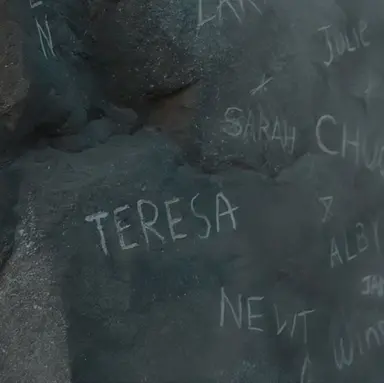 N
LAR
Julie
SARAH
CHU
TERESA
&
ALBI
JA
NEVIT
Win